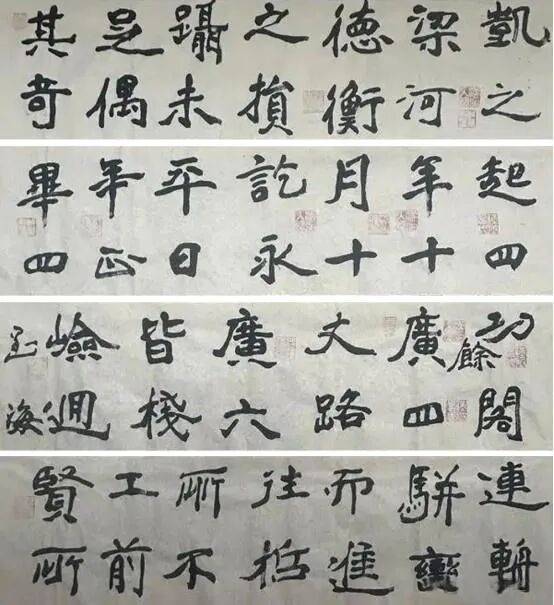 凱之
梁河
德衡
之損
躡未
足偶
其奇
起四
年十
月十
訖永
平日
年正
畢四
功閣
餘
廣四
丈路
廣六
皆棧
嶮迥
海
連輈
駢轡
而進
往哲
所不
工前
賢所